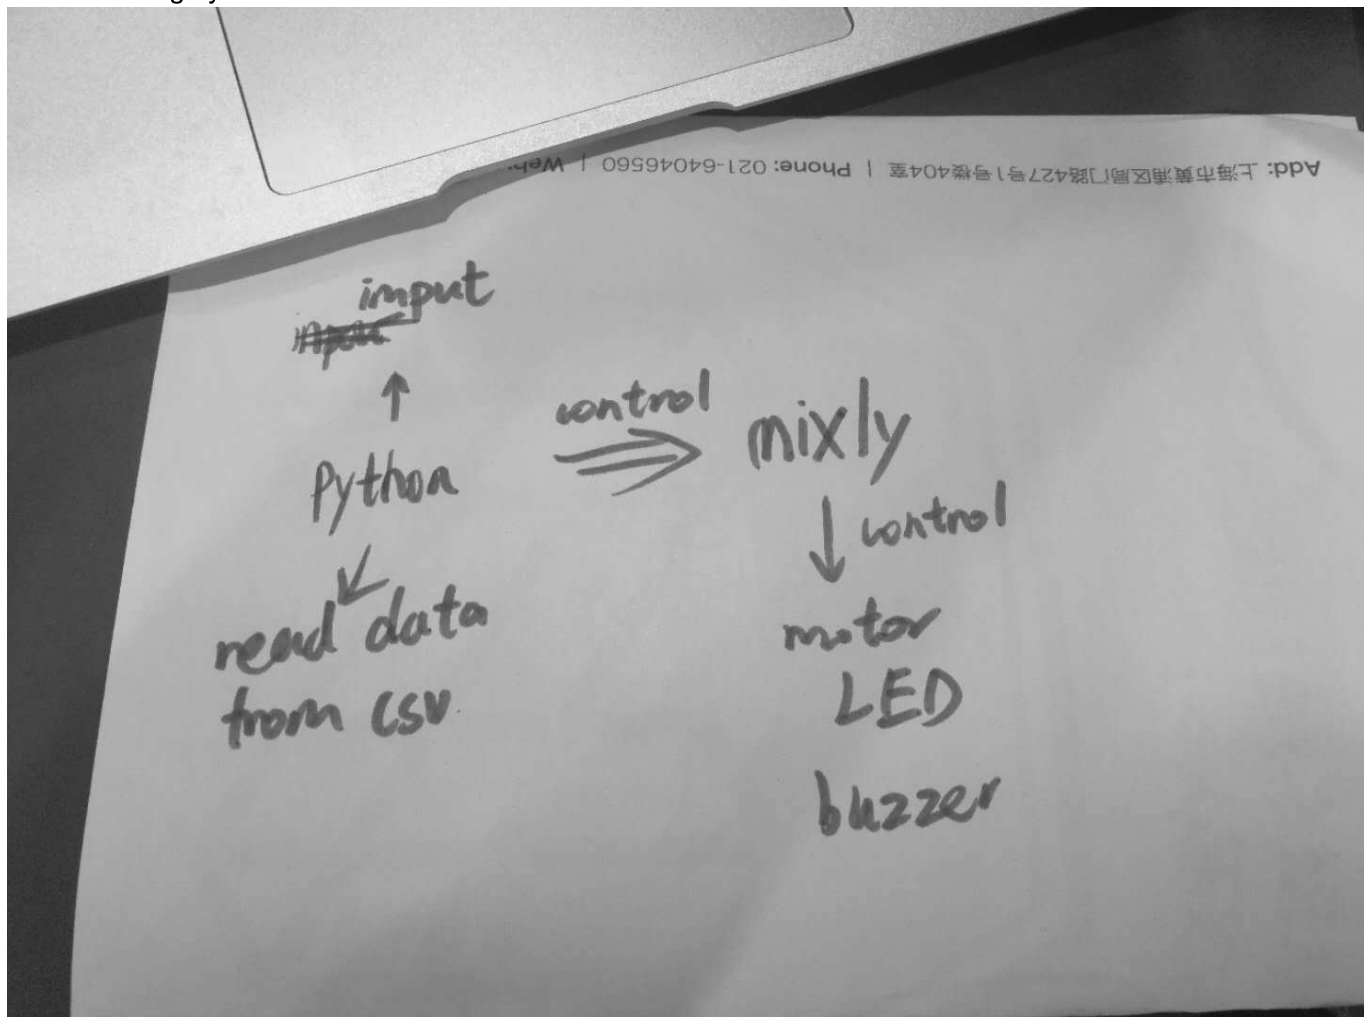 Add: 上海市黄浦区局门路427号1号楼404室 | Phone: 021-64046560 | Web:
input
control
mixly
Python
control
read data
from csv.
motor
LED
buzzer